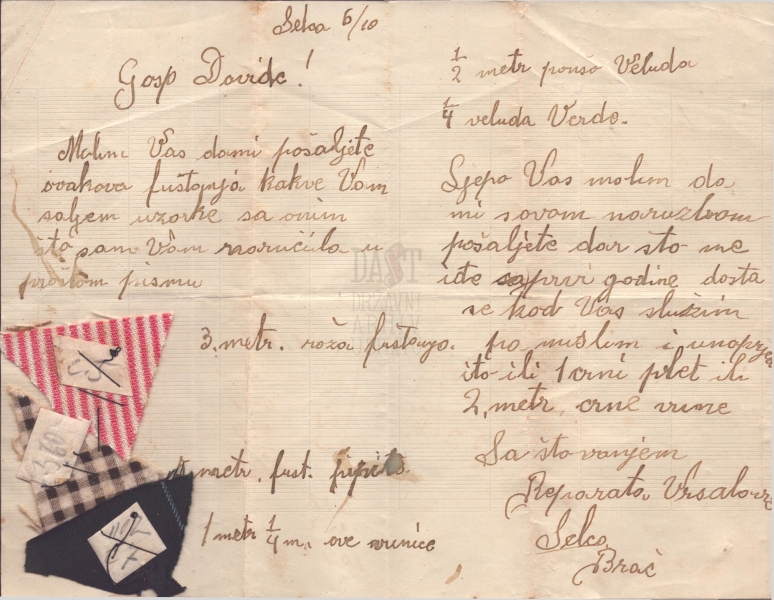 Selca 6/10
Gosp Davide!
Molim Vas dami pošaljete
ovakova fuštanja kakve Vam
saljem uzorke sa onim
što sam Vam naručila u
prošlom pismu
3 metr. roža fuštanja.
metr. fušt. pipito
1 metr 1/4 m. ove vunice
1/2 metr ponso Veluda
1/4 veluda Verde.
Ljepo Vas molim da
mi sovom naruzbom
pošaljete dar što me
ide prvi godine dosta
se kod Vas služim
pa mislim i unaprje
ito ili 1 crni plet ili
2 metr crne vune
Sa što vanjem
Reparata Vrsalovic
Selca
Brač
DAST
DRŽAVNI
ARHIV U